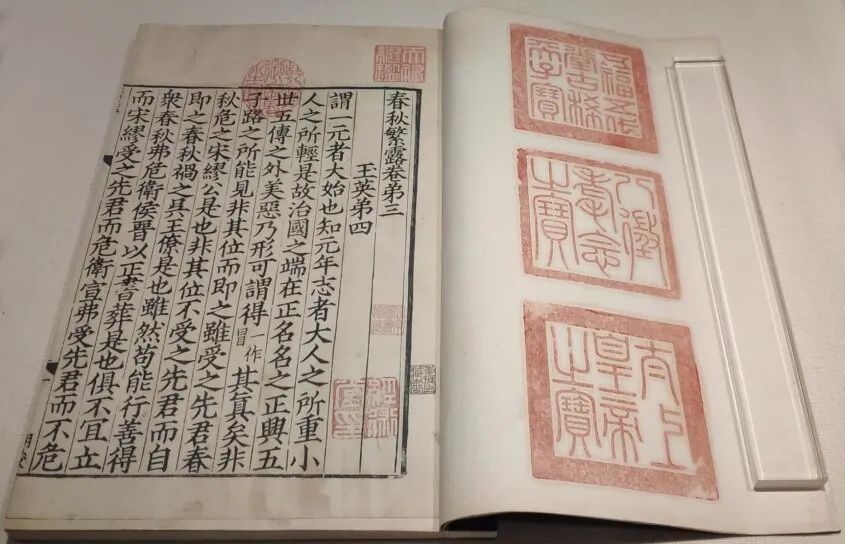 五福五代
堂古稀
天子寶
八徵
耄念
之寶
太上
皇帝
之寶
天祿
繼鑑
春秋繁露卷第三
王英第四
謂一元者大始也知元年志者大人之所重小
人之所輕是故治國之端在正名名之正興五
世五傳之外美惡乃形可謂得一作冒其真矣非
子路之所能見非其位而即之雖受之先君春
秋危之宋繆公是也非其位不受之先君而自
即之春秋禍之吳王僚是也雖然苟能行善得
衆春秋弗危衛侯晉以正書葬是也俱不宜立
而宋繆受之先君而危衛宣弗受先君而不危